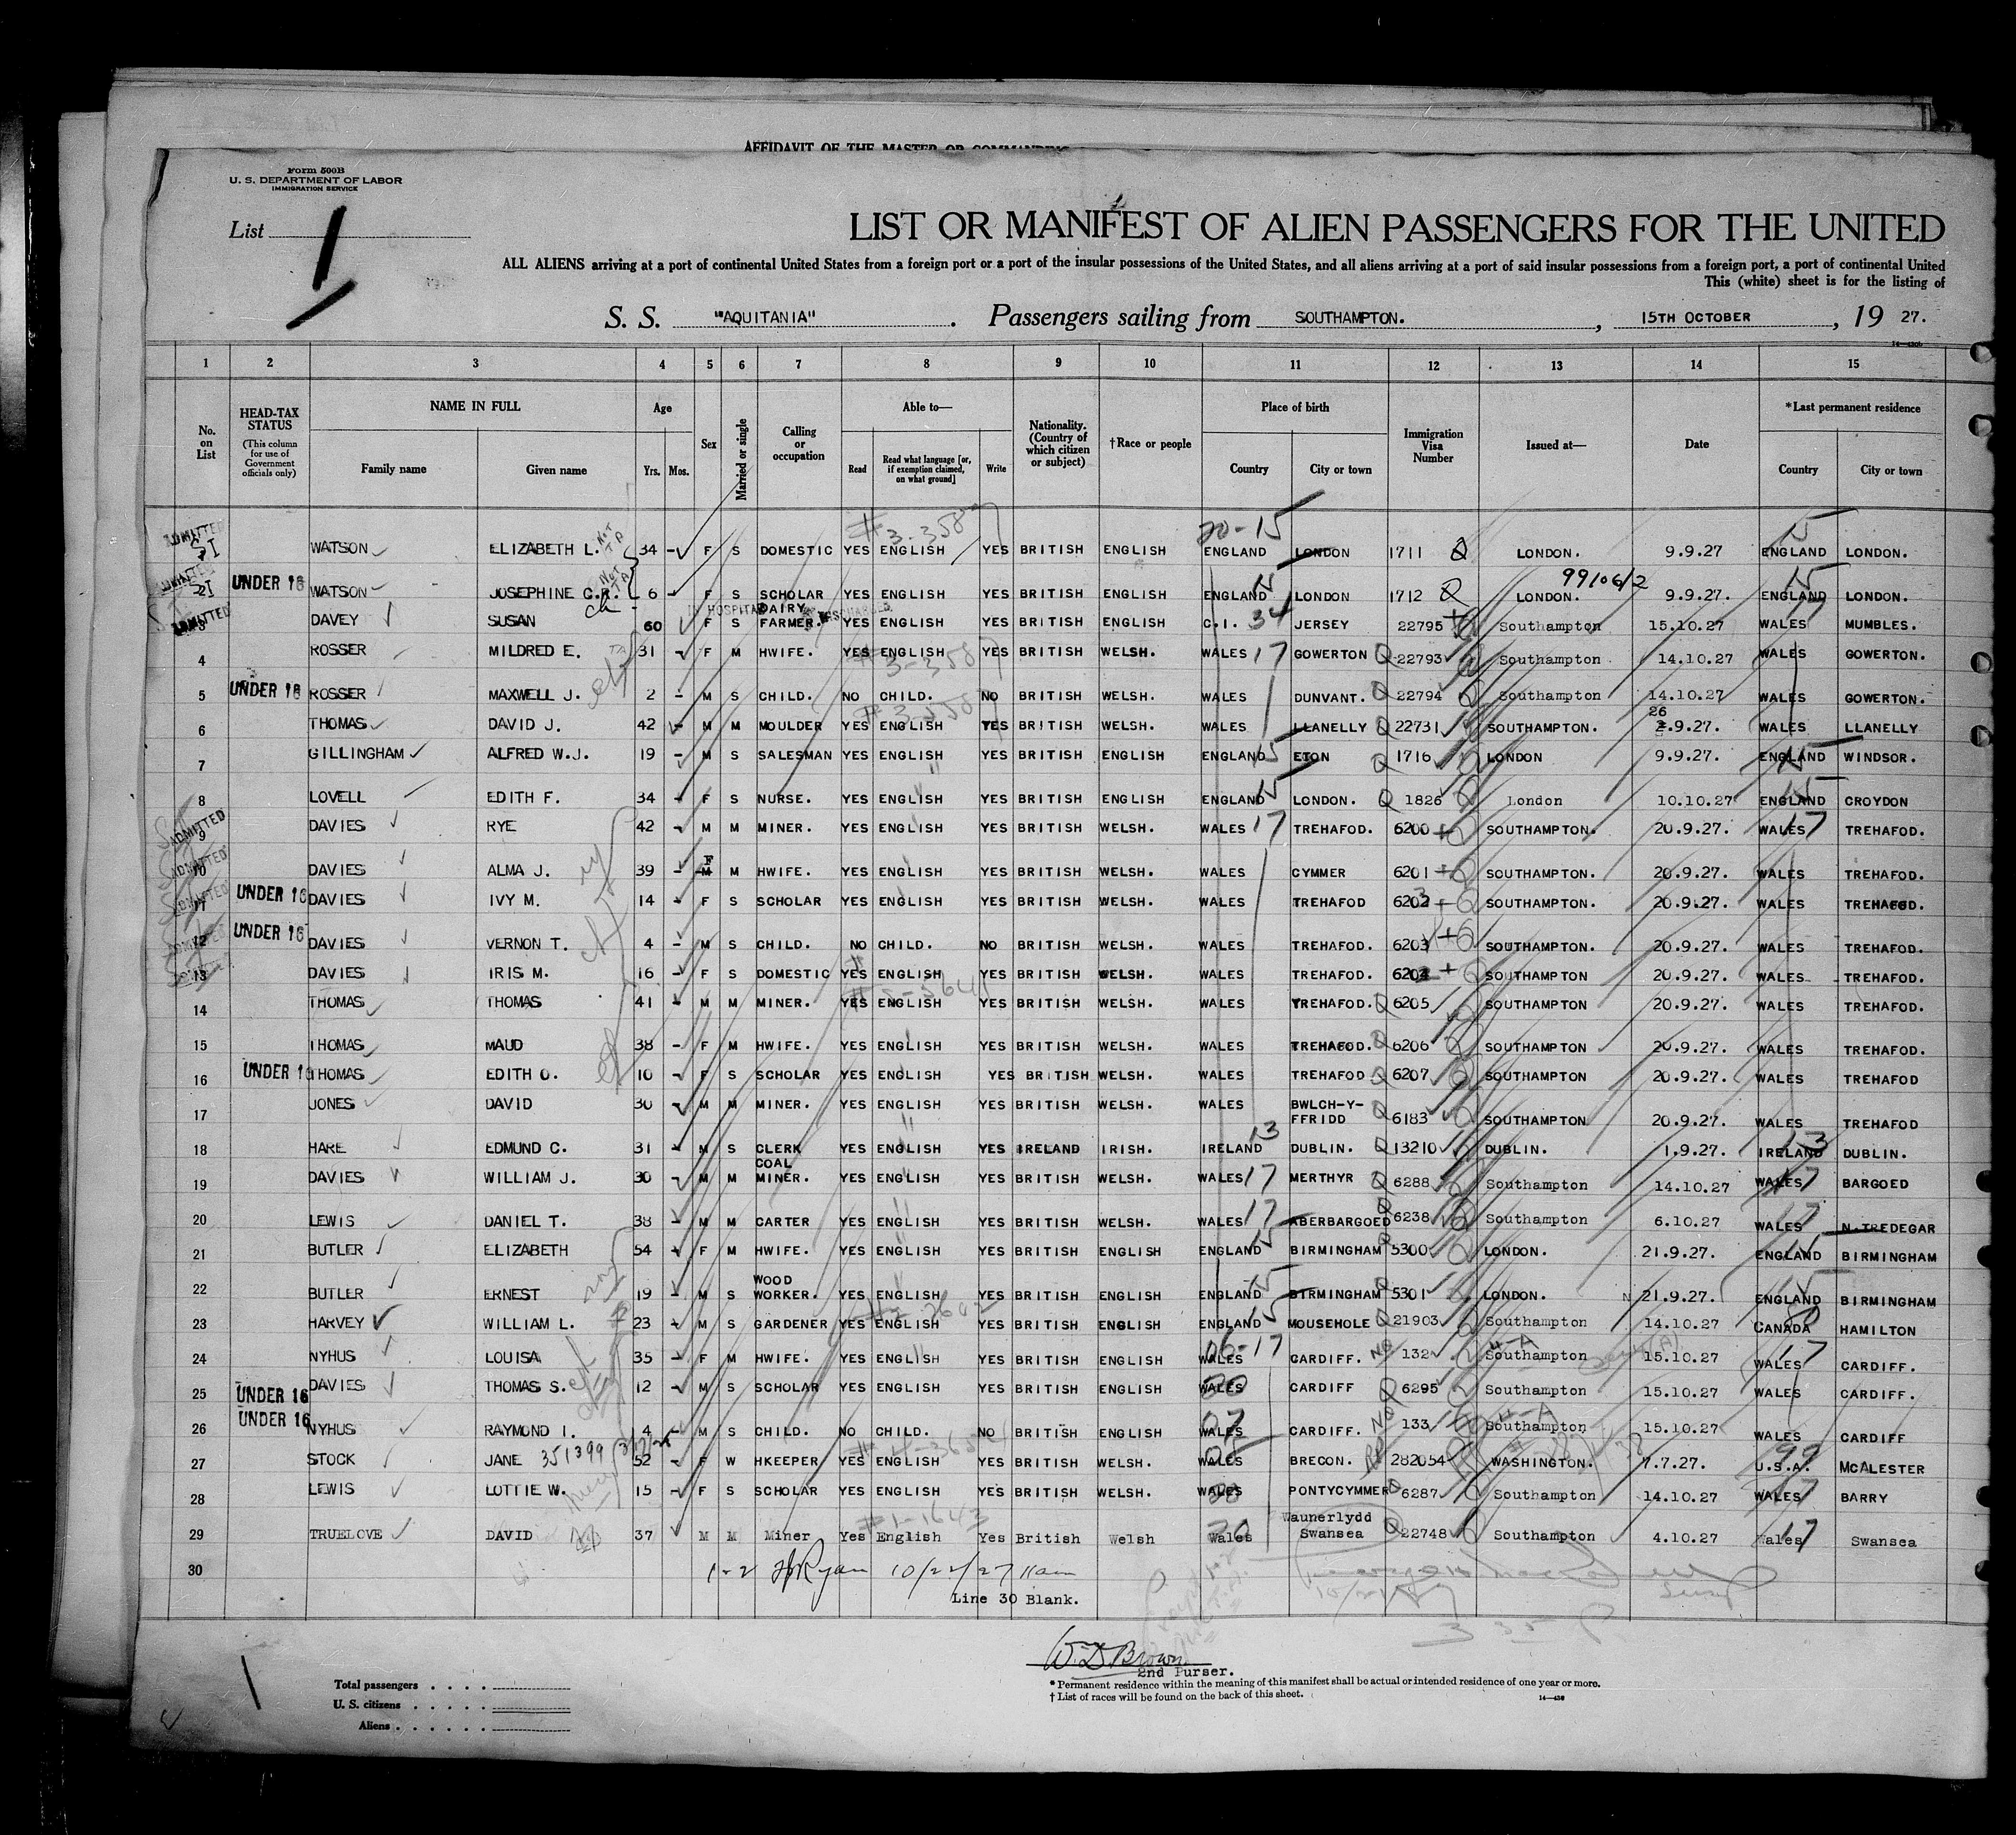 AFFIDAVIT OF THE MASTER OR COMMANDING
Form 500B
U. S. DEPARTMENT OF LABOR
IMMIGRATION SERVICE
List 1
LIST OR MANIFEST OF ALIEN PASSENGERS FOR THE UNITED
ALL ALIENS arriving at a port of continental United States from a foreign port or a port of the insular possessions of the United States, and all aliens arriving at a port of said insular possessions from a foreign port, a port of continental United
This (white) sheet is for the listing of
S. S. "AQUITANIA". Passengers sailing from SOUTHAMPTON., 15TH OCTOBER, 19 27.
1 2 3 4 5 6 7 8 9 10 11 12 13 14 15
No. on List
HEAD-TAX STATUS
(This column for use of Government officials only)
NAME IN FULL
Family name Given name
Age
Yrs. Mos.
Sex
Married or single
Calling or occupation
Able to—
Read Read what language [or, if exemption claimed, on what ground] Write
Nationality. (Country of which citizen or subject)
†Race or people
Place of birth
Country City or town
Immigration Visa Number
Issued at—
Date
*Last permanent residence
Country City or town
20-15 15
ADMITTED SI WATSON ELIZABETH L. NOT TA 34 - F S DOMESTIC YES ENGLISH YES BRITISH ENGLISH ENGLAND LONDON 1711 LONDON. 9.9.27 ENGLAND LONDON.
9910612
SI UNDER 16 WATSON JOSEPHINE C.R. NOT TA 6 - F S SCHOLAR YES ENGLISH YES BRITISH ENGLISH ENGLAND 15 LONDON 1712 LONDON. 9.9.27. ENGLAND 15 LONDON.
IN HOSPITAL DISCHARGED
ADMITTED 3 DAVEY SUSAN 60 F S DAIRY FARMER. YES ENGLISH YES BRITISH ENGLISH C.I. 34 JERSEY 22795 Southampton 15.10.27 WALES 17 MUMBLES.
4 ROSSER MILDRED E. 31 - F M HWIFE. YES ENGLISH YES BRITISH WELSH. WALES 17 GOWERTON 22793 Southampton 14.10.27 WALES GOWERTON.
5 UNDER 16 ROSSER MAXWELL J. 2 - M S CHILD. NO CHILD. NO BRITISH WELSH. WALES DUNVANT. 22794 Southampton 14.10.27 WALES GOWERTON.
6 THOMAS DAVID J. 42 - M M MOULDER YES ENGLISH YES BRITISH WELSH. WALES LLANELLY 22731 SOUTHAMPTON. 26.9.27. WALES LLANELLY
7 GILLINGHAM ALFRED W.J. 19 - M S SALESMAN YES ENGLISH YES BRITISH ENGLISH ENGLAND 15 ETON 1716 LONDON 9.9.27. ENGLAND 15 WINDSOR.
8 LOVELL EDITH F. 34 - F S NURSE. YES ENGLISH YES BRITISH ENGLISH ENGLAND 15 LONDON. 1826 London 10.10.27 ENGLAND 15 CROYDON
ADMITTED 9 DAVIES RYE 42 - M M MINER. YES ENGLISH YES BRITISH WELSH. WALES 17 TREHAFOD. 6200 SOUTHAMPTON. 20.9.27. WALES 17 TREHAFOD.
ADMITTED 10 DAVIES ALMA J. 39 - F M HWIFE. YES ENGLISH YES BRITISH WELSH. WALES CYMMER 6201 SOUTHAMPTON. 20.9.27. WALES TREHAFOD.
ADMITTED 11 UNDER 16 DAVIES IVY M. 14 - F S SCHOLAR YES ENGLISH YES BRITISH WELSH. WALES TREHAFOD 6203 SOUTHAMPTON. 20.9.27. WALES TREHAFOD.
ADMITTED 12 UNDER 16 DAVIES VERNON T. 4 - M S CHILD. NO CHILD. NO BRITISH WELSH. WALES TREHAFOD. 6203 SOUTHAMPTON. 20.9.27. WALES TREHAFOD.
13 DAVIES IRIS M. 16 - F S DOMESTIC YES ENGLISH YES BRITISH WELSH. WALES TREHAFOD. 6202 SOUTHAMPTON 20.9.27. WALES TREHAFOD.
14 THOMAS THOMAS 41 - M M MINER. YES ENGLISH YES BRITISH WELSH. WALES TREHAFOD. 6205 SOUTHAMPTON 20.9.27. WALES TREHAFOD.
15 THOMAS MAUD 38 - F M HWIFE. YES ENGLISH YES BRITISH WELSH. WALES TREHAFOD. 6206 SOUTHAMPTON 20.9.27. WALES TREHAFOD.
16 UNDER 16 THOMAS EDITH O. 10 - F S SCHOLAR YES ENGLISH YES BRITISH WELSH. WALES TREHAFOD 6207 SOUTHAMPTON 20.9.27. WALES TREHAFOD
17 JONES DAVID 30 - M M MINER. YES ENGLISH YES BRITISH WELSH. WALES BWLCH-Y-FFRIDD 6183 SOUTHAMPTON 20.9.27. WALES TREHAFOD
18 HARE EDMUND C. 31 - M S CLERK YES ENGLISH YES IRELAND IRISH. IRELAND 13 DUBLIN. 13210 DUBLIN. 1.9.27. IRELAND 13 DUBLIN.
19 DAVIES WILLIAM J. 30 - M M COAL MINER. YES ENGLISH YES BRITISH WELSH. WALES 17 MERTHYR 6288 Southampton 14.10.27 WALES 17 BARGOED
20 LEWIS DANIEL T. 38 - M M CARTER YES ENGLISH YES BRITISH WELSH. WALES 17 ABERBARGOED 6238 Southampton 6.10.27 WALES 17 N.TREDEGAR
21 BUTLER ELIZABETH 54 - F M HWIFE. YES ENGLISH YES BRITISH ENGLISH ENGLAND 15 BIRMINGHAM 5300 LONDON. 21.9.27. ENGLAND 15 BIRMINGHAM
22 BUTLER ERNEST 19 - M S WOOD WORKER. YES ENGLISH YES BRITISH ENGLISH ENGLAND 15 BIRMINGHAM 5301 LONDON. 21.9.27. ENGLAND 15 BIRMINGHAM
23 HARVEY WILLIAM L. 23 - M S GARDENER YES ENGLISH YES BRITISH ENGLISH ENGLAND 15 MOUSEHOLE 21903 Southampton 14.10.27 CANADA HAMILTON
24 NYHUS LOUISA 35 - F M HWIFE. YES ENGLISH YES BRITISH ENGLISH WALES 06-17 CARDIFF. NQ 132 4-A Southampton 15.10.27 WALES 17 CARDIFF.
25 UNDER 16 DAVIES THOMAS S. 12 - M S SCHOLAR YES ENGLISH YES BRITISH ENGLISH WALES CARDIFF 6295 Southampton 15.10.27 WALES CARDIFF.
26 UNDER 16 NYHUS RAYMOND I. 4 - M S CHILD. NO CHILD. NO BRITISH ENGLISH WALES 07 CARDIFF. NQ 133 4-A Southampton 15.10.27 WALES CARDIFF
27 STOCK JANE 351399 52 - F W HKEEPER YES ENGLISH YES BRITISH WELSH. WALES BRECON. 282054 WASHINGTON. 7.7.27. U.S.A. 99 McALESTER
28 LEWIS LOTTIE W. 15 - F S SCHOLAR YES ENGLISH YES BRITISH WELSH. WALES PONTYCYMMER 6287 Southampton 14.10.27 WALES 17 BARRY
29 TRUELOVE DAVID 37 M M Miner Yes English Yes British Welsh Wales Waunerlydd Swansea 22748 Southampton 4.10.27 Wales 17 Swansea
30 1-2 Ryan 10/22/27 11am
Line 30 Blank.
W.D Brown
2nd Purser.
Total passengers . . . .
U. S. citizens . . . . .
Aliens . . . . . .
* Permanent residence within the meaning of this manifest shall be actual or intended residence of one year or more.
† List of races will be found on the back of this sheet.